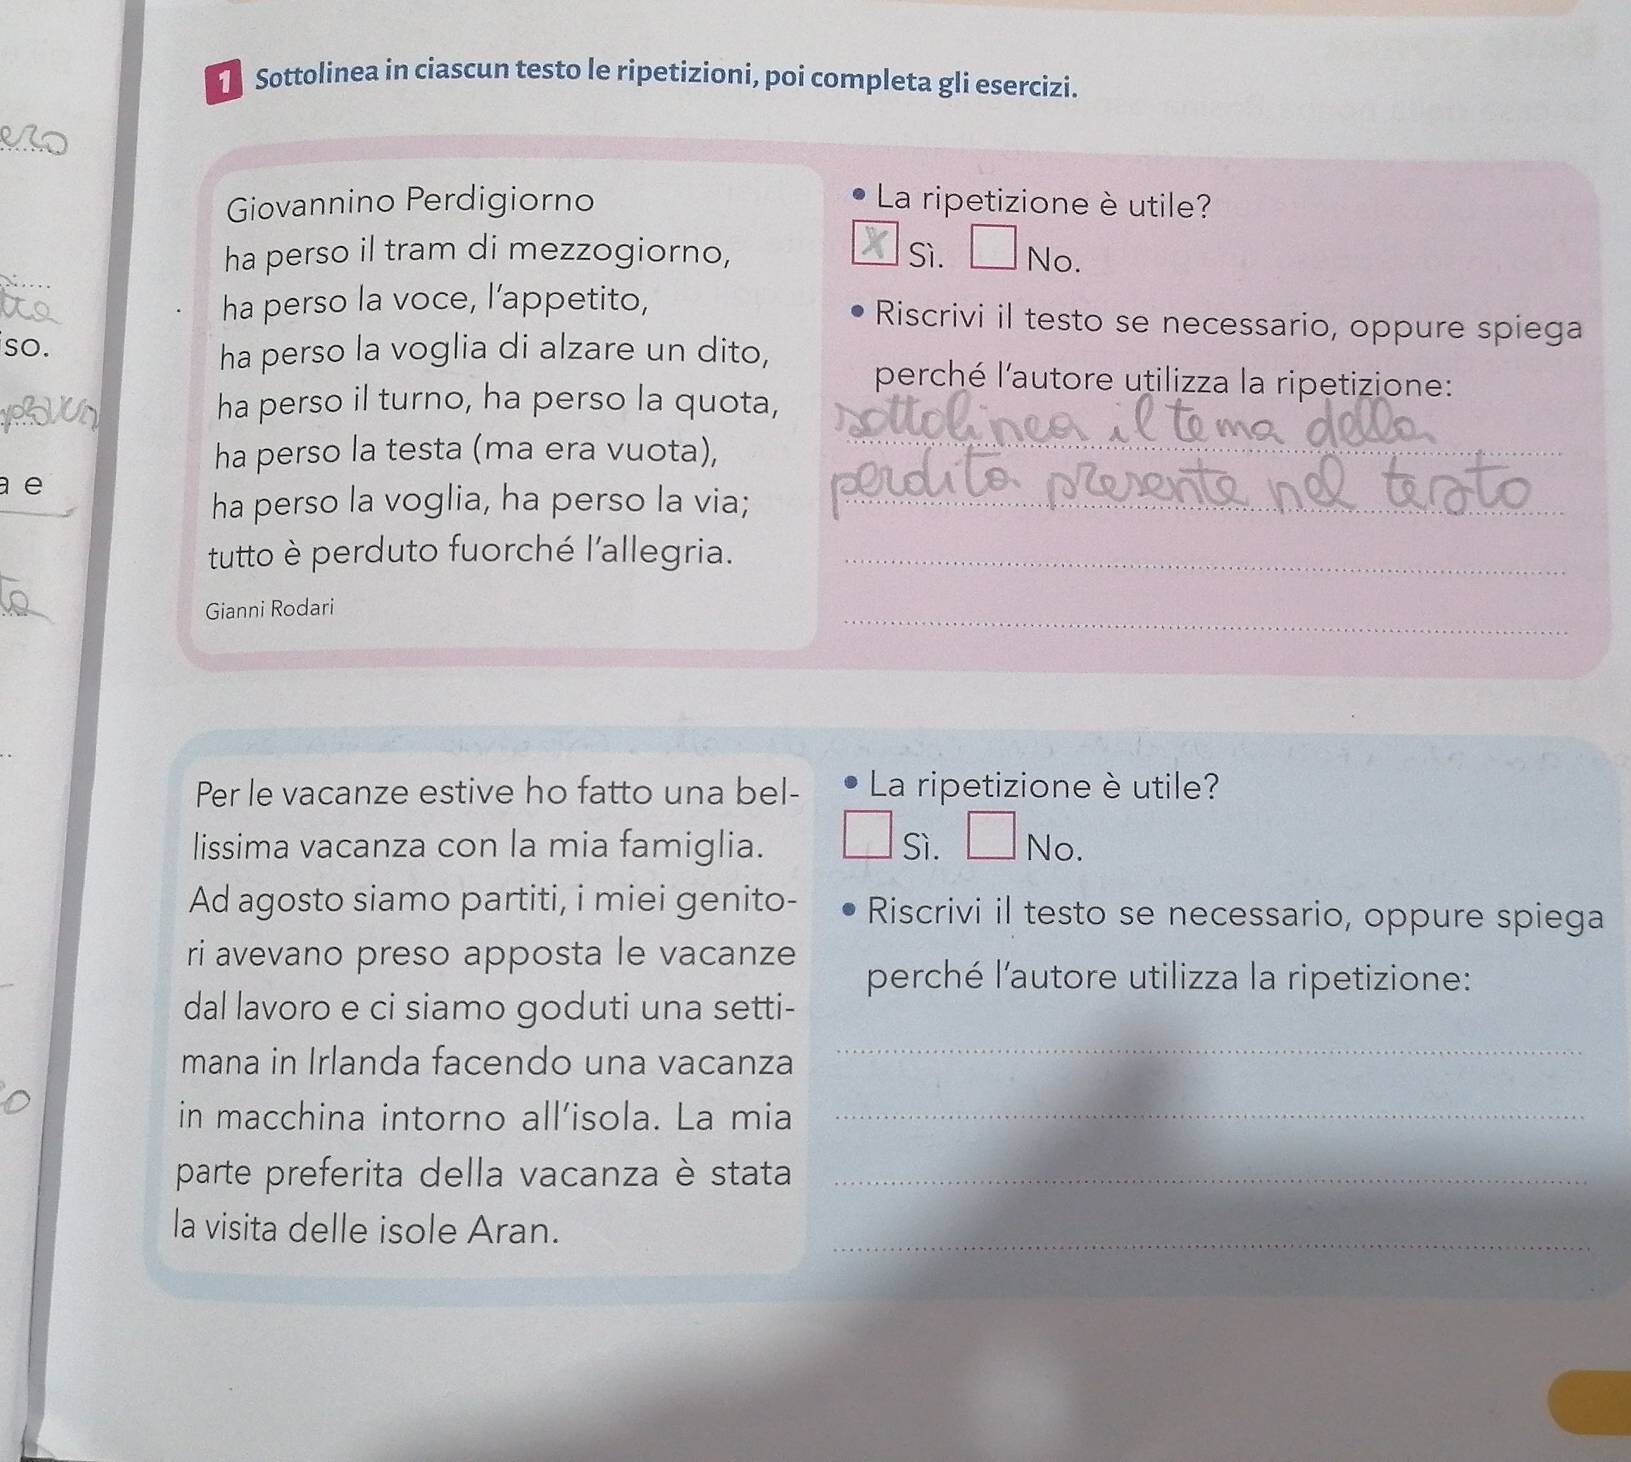 1 Sottolinea in ciascun testo le ripetizioni, poi completa gli esercizi.
ero
iso.
a e
Giovannino Perdigiorno
ha perso il tram di mezzogiorno,
ha perso la voce, l'appetito,
ha perso la voglia di alzare un dito,
ha perso il turno, ha perso la quota,
ha perso la testa (ma era vuota),
ha perso la voglia, ha perso la via;
tutto è perduto fuorché l'allegria.
Gianni Rodari
• La ripetizione è utile?
X Sì. No.
• Riscrivi il testo se necessario, oppure spiega
perché l'autore utilizza la ripetizione:
sottolinea il tema della
perdita presente nel testo
Per le vacanze estive ho fatto una bel-
lissima vacanza con la mia famiglia.
Ad agosto siamo partiti, i miei genito-
ri avevano preso apposta le vacanze
dal lavoro e ci siamo goduti una setti-
mana in Irlanda facendo una vacanza
in macchina intorno all'isola. La mia
parte preferita della vacanza è stata
la visita delle isole Aran.
• La ripetizione è utile?
Sì. No.
• Riscrivi il testo se necessario, oppure spiega
perché l'autore utilizza la ripetizione: